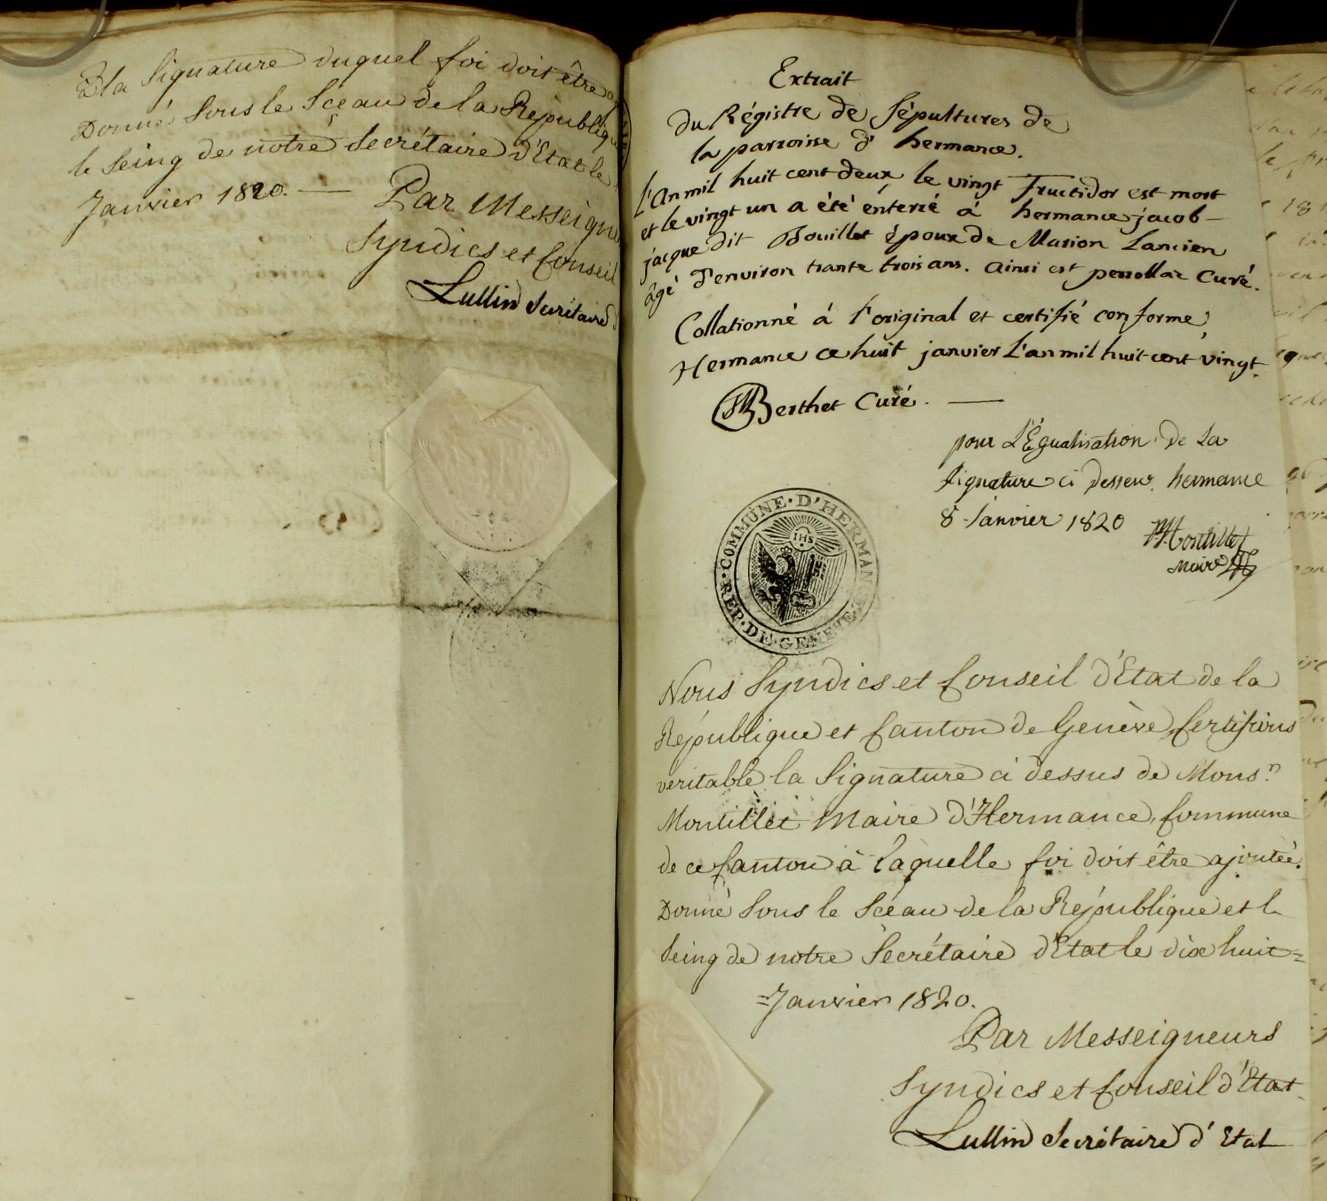 à la Signature duquel foi doit être
Donné Sous le Sceau de la République
le Seing de notre Secrétaire d'Etat le
Janvier 1820. —
Par Messeigne
Syndics et Conseil
Lullin Secrétaire
Extrait
Du Régistre de Sépultures de
la parroise d'hermance.
L'an mil huit cent deux, le vingt Fructidor est mort
et le vingt un a été enterré á hermance jacob
jacque dit Bouillet époux de Marion Lancien
âgé d'environ trante trois ans. Ainsi est perrollaz Curé.
Collationné á l'original et certifié conforme,
Hermance ce huit janvier L'an mil huit cent vingt.
Berthet Curé. —
pour L'Egualisation de La
Signature ci desseur. hermance
8 Janvier 1820
Montillet
Maire
COMMUNE · D'HERMANCE
REP · DE · GENEVE
IHS
Nous Syndics et Conseil d'Etat de la
République et Canton de Genève, Certifions
veritable la Signature ci dessus de Monsr
Montillet Maire d'Hermance, Commune
de ce Canton à laquelle foi doit être ajoutée.
Donné Sous le Sceau de la République et le
Seing de notre Secrétaire d'Etat le dix huit=
=Janvier 1820.
Par Messeigneurs
Syndics et Conseil d'Etat
Lullin Secrétaire d'Etat